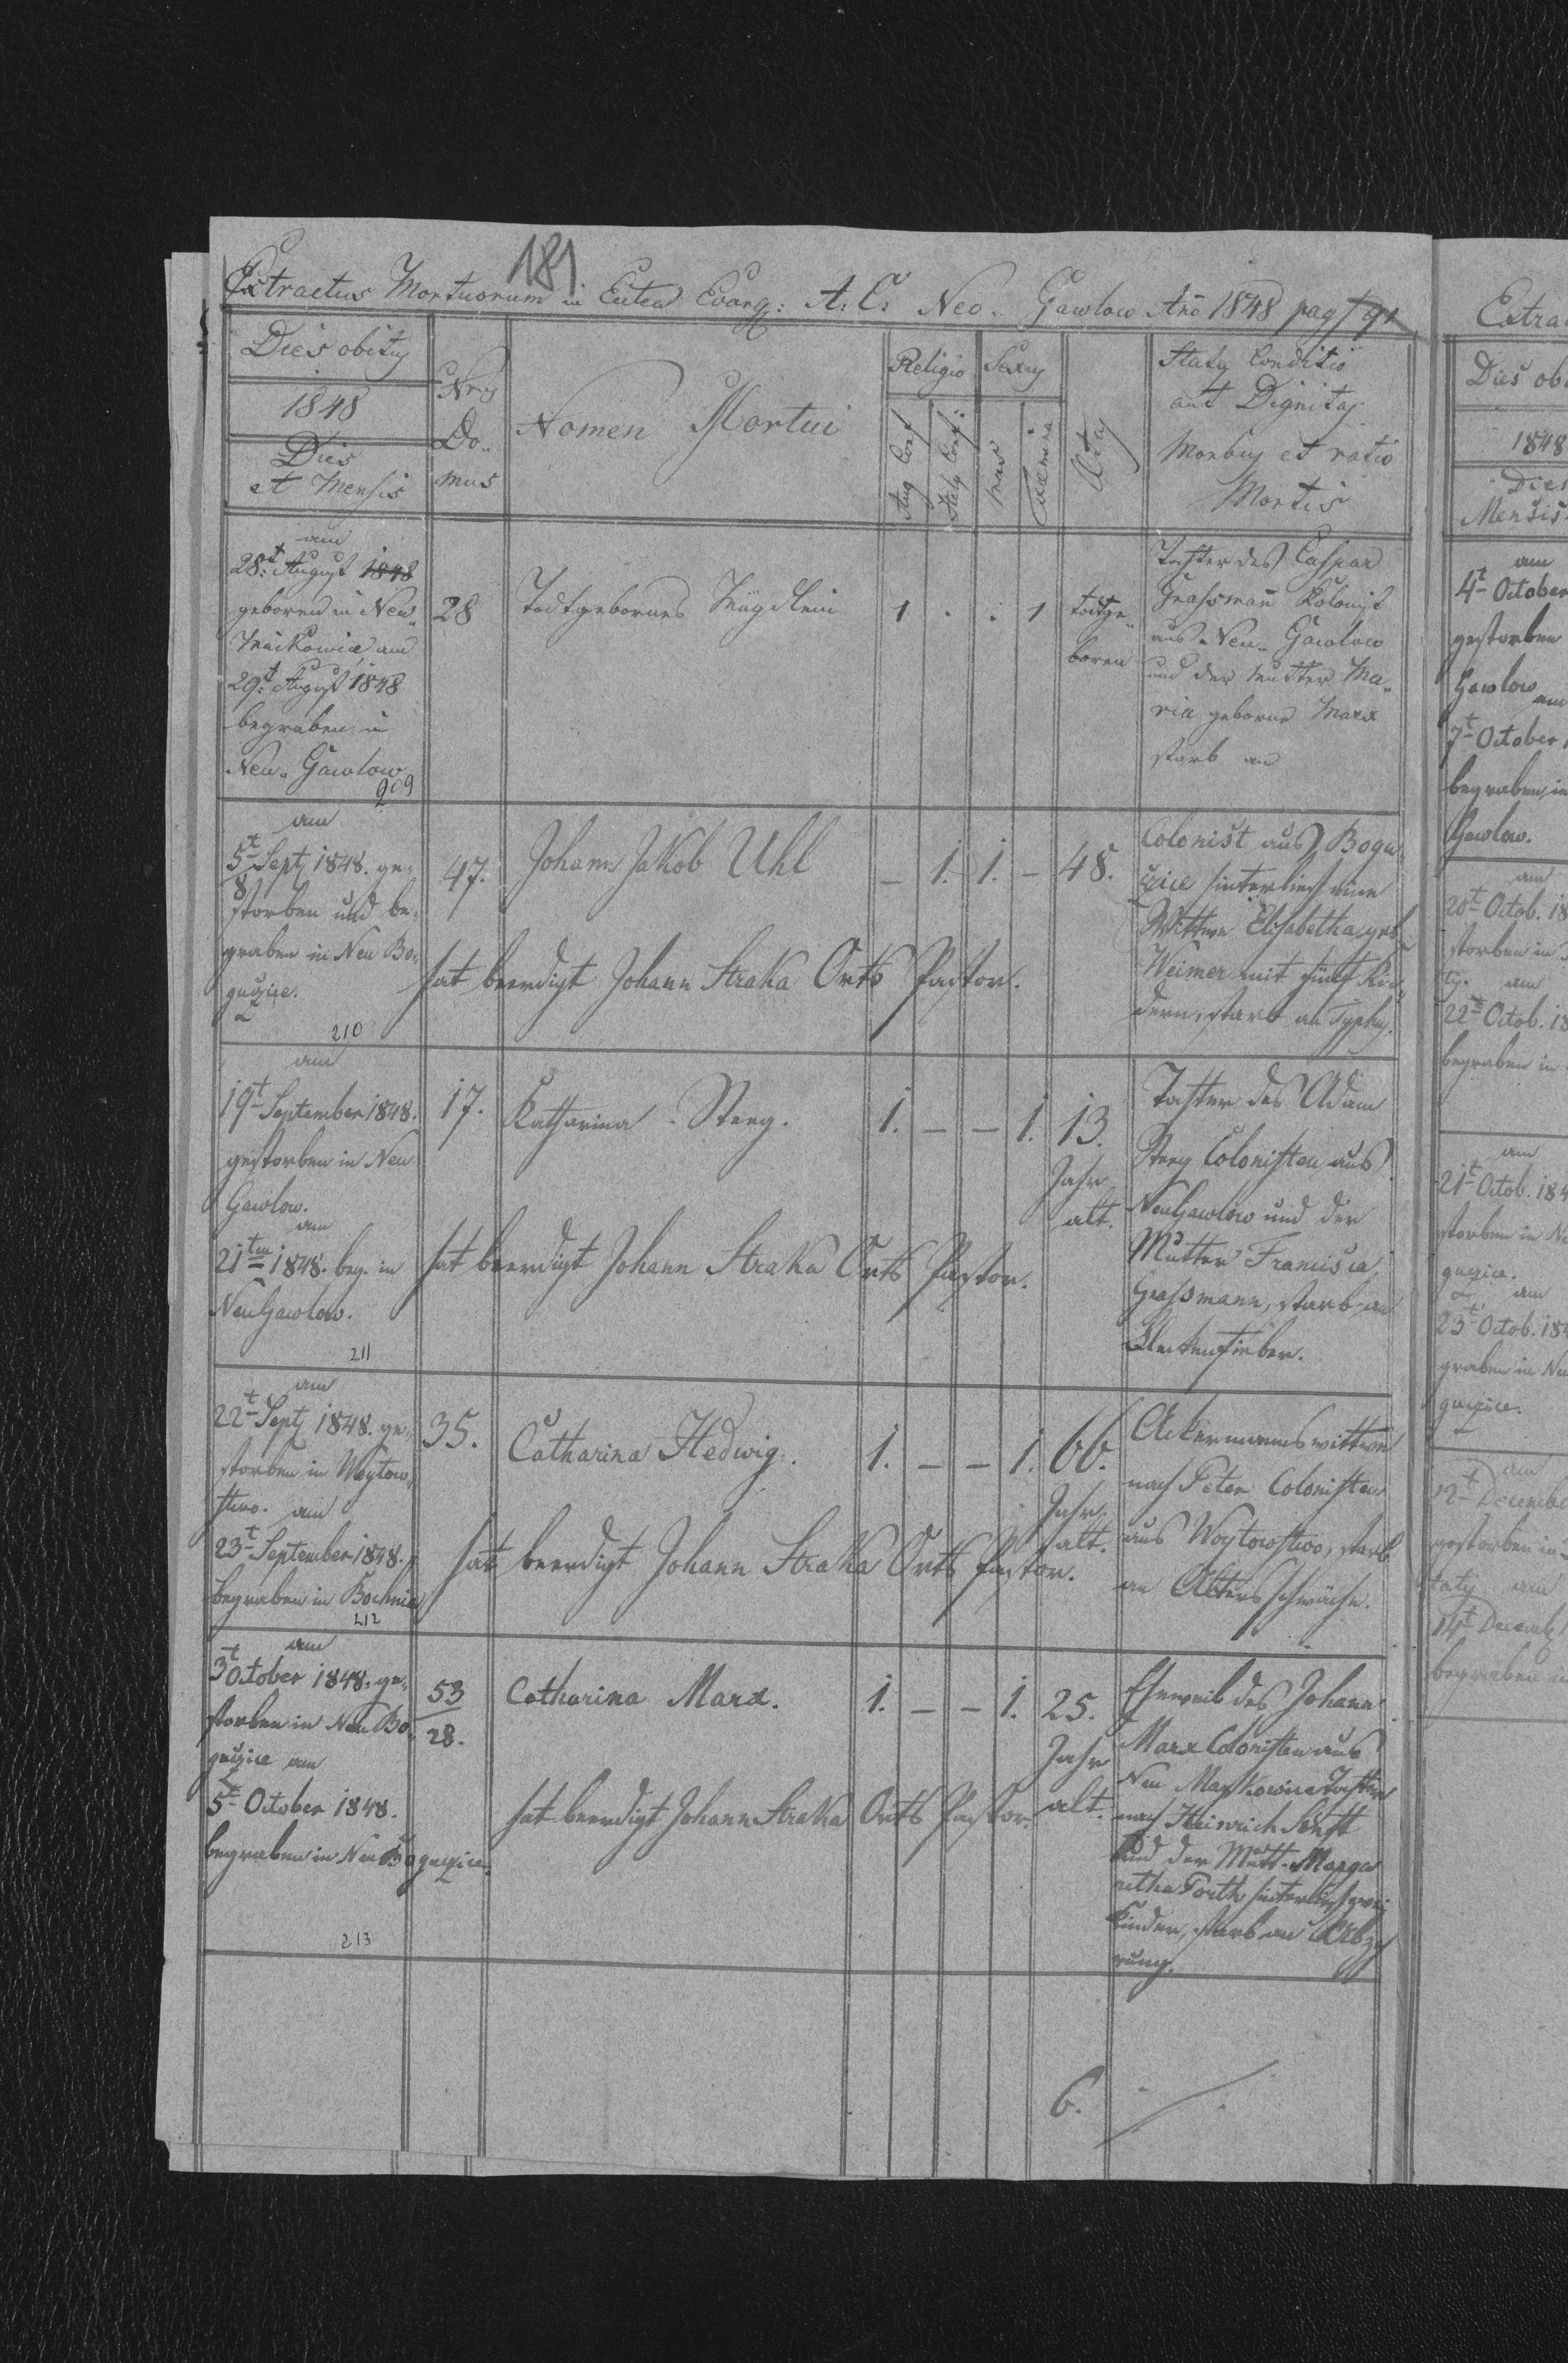 181
Extractus Mortuorum in Eccles Evang: A: C: Neo. Gawlow Año 1848 pag
Dies obitus
1848
Dies
et Mensis
Nrus
Do..
mus
Nomen Mortui
Religio
Aug Conf
Helv Conf:
Sexus
Mas
Foemina
Aetas
Status Conditio
aut Dignitas
Morbus et ratio
Mortis
am
28t: August 1848
geboren in Neu..
am
29t: August 1848
begraben in
Neu.. Gawlow
209
28
Todtgebornes Mägdlein
1 . . 1
todtge..
boren
Tochter des Caspar
Grassmañ Kolonist
aus Neu.. Gawlow
und der Mutter Ma..
ria geborne Marx
starb an
am
5t Sept 1848. ge-
8
storben und be-
graben in Neu Bo-
guczice.
210
47.
Johann Jakob Uhl
– 1. 1. – 48.
hat beerdigt Johann Straka Orts Pastor.
Colonist aus Bogu-
czice hinterließ eine
Wittwe Elisabetha geb.
Weimer mit fünf Kin-
dern, starb an Typhus.
am
19t September 1848.
gestorben in Neu
Gawlow.
am
21ten 1848. beg. in
Neu Gawlow.
211
17.
Katharina Steeg.
1. – – 1. 13.
Jahr
alt.
hat beerdigt Johann Straka Orts Pastor.
Tochter des Adam
Steeg Colonisten aus
Neu Gawlow und der
Mutter Francisca
Grassmann, starb an
am
22t Sept 1848. ge-
storben in Woytow-
stwo. am
23t September 1848.
begraben in Bochnia
212
35.
Catharina Hedwig.
1. – – 1. 66.
Jahr
alt.
hat beerdigt Johann Straka Orts Pastor.
Ackermannswittwe
nach Peter Colonisten
aus Woytowstwo, starb
an Altersschwäche.
am
3t October 1848. ge-
storben in Neu Bo-
guczice am
5t October 1848.
begraben in Neu Boguczice.
213
53
28.
Catharina Marx.
1. – – 1. 25.
Jahr
alt.
hat beerdigt Johann Straka Orts Pastor.
Eheweib des Johann
Marx Colonisten aus
Neu Tochter
nach Heinrich Senft
und der Mutt. Marga
retha hinterließ zwei
Kinder, starb an Abzeh
rung.
6.
Extra
Dies ob
1848
Die
Mensis
am
4t October
gestorben
Gawlow am
7t October
begraben in
Gawlow.
am
20t Octob. 18
storben in
am
22t Octob. 18
begraben in
am
21t Octob. 184
storben in Ne
guczice.
am
23t Octob. 184
graben in Neu
guczice.
am
12t Decembe
gestorben in
am
14t Decemb
begraben in